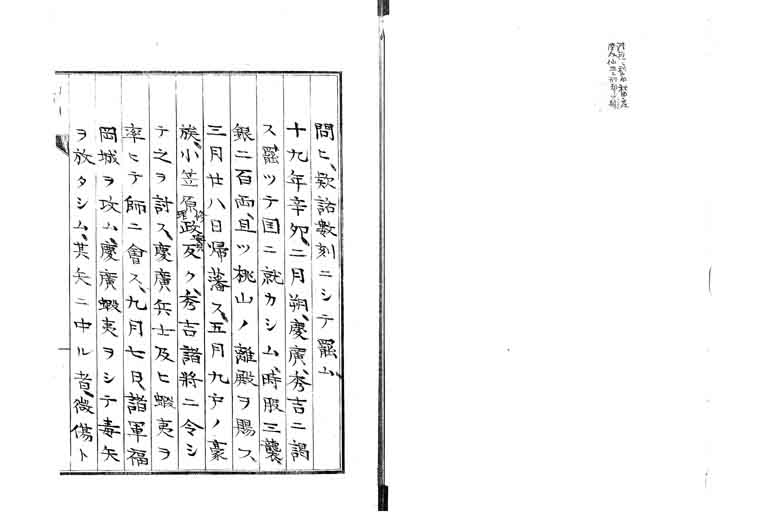 問ヒ、欵話數刻ニシテ罷ム、
十九年辛卯、二月朔、慶廣、秀吉ニ謁
ス罷ツテ国ニ就カシム、時服三襲
銀二百両、且ツ桃山ノ離殿ヲ賜フ、
三月廿八日帰藩ス、五月九戸ノ豪
族、小笠原政反ク、秀吉諸将ニ令シ
テ之ヲ討ス、慶廣兵士及ヒ蝦夷ヲ
率ヒテ師ニ會ス、九月七日、諸軍福
岡城ヲ攻ム、慶廣蝦夷ヲシテ毒矢
ヲ放タシム、其矢ニ中ル者、微傷ト